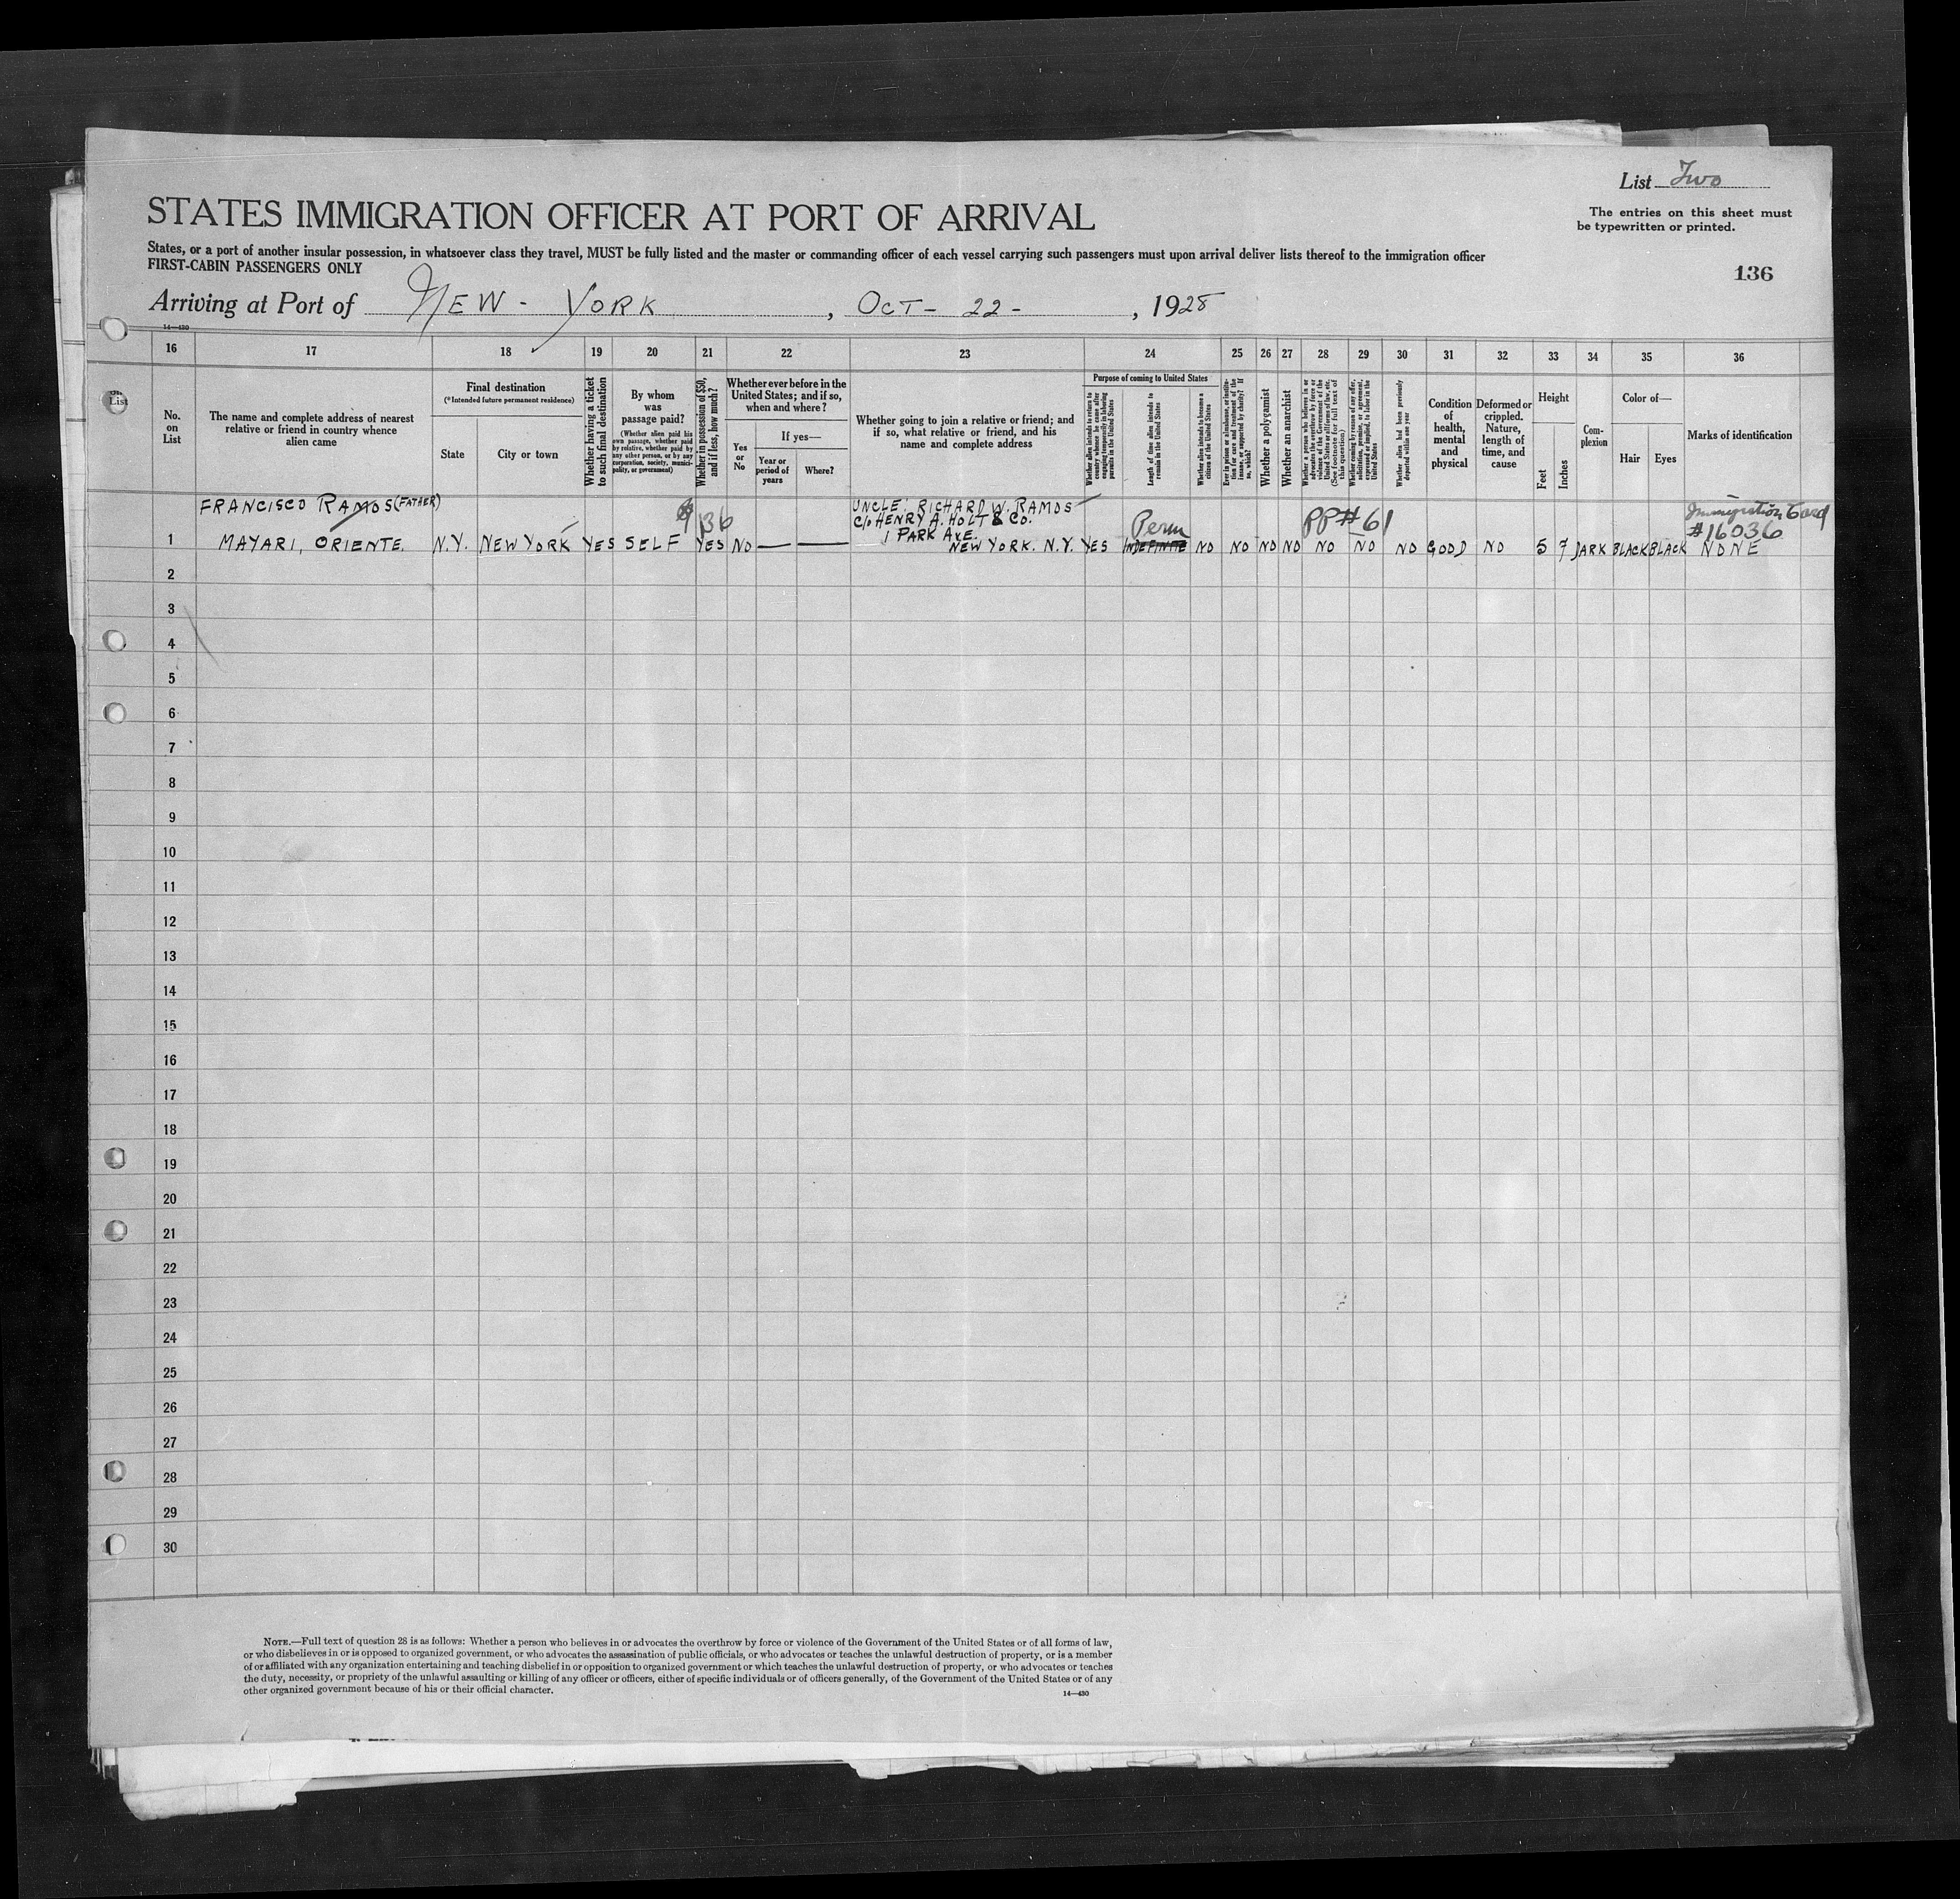 List Two
STATES IMMIGRATION OFFICER AT PORT OF ARRIVAL
The entries on this sheet must
be typewritten or printed.
States, or a port of another insular possession, in whatsoever class they travel, MUST be fully listed and the master or commanding officer of each vessel carrying such passengers must upon arrival deliver lists thereof to the immigration officer
FIRST-CABIN PASSENGERS ONLY
136
Arriving at Port of NEW - YORK, OCT - 22 -, 1928
14—430
16 17 18 19 20 21 22 23 24 25 26 27 28 29 30 31 32 33 34 35 36
List
No.
on
List
The name and complete address of nearest
relative or friend in country whence
alien came
Final destination
(*Intended future permanent residence)
State
City or town
Whether having a ticket
to such final destination
By whom
was
passage paid?
(Whether alien paid his
own passage, whether paid
by relative, whether paid by
any other person, or by any
corporation, society, munici-
pality, or government)
Whether in possession of $50,
and if less, how much?
Whether ever before in the
United States; and if so,
when and where?
Yes
or
No
If yes—
Year or
period of
years
Where?
Whether going to join a relative or friend; and
if so, what relative or friend, and his
name and complete address
Purpose of coming to United States
Whether alien intends to return to
country whence he came after
engaging temporarily in laboring
pursuits in the United States
Length of time alien intends to
remain in the United States
Whether alien intends to become a
citizen of the United States
Ever in prison or almshouse, or institu-
tion for care and treatment of the
insane, or supported by charity? If
so, which?
Whether a polygamist
Whether an anarchist
Whether a person who believes in or
advocates the overthrow by force or
violence of the Government of the
United States or all forms of law, etc.
(See footnote for full text of
this question)
Whether coming by reason of any offer,
solicitation, promise, or agreement,
expressed or implied, to labor in the
United States
Whether alien had been previously
deported within one year
Condition
of
health,
mental
and
physical
Deformed or
crippled.
Nature,
length of
time, and
cause
Height
Feet
Inches
Com-
plexion
Color of—
Hair
Eyes
Marks of identification
FRANCISCO RAMOS (FATHER)
136
UNCLE: RICHARD W. RAMOS
C/O HENRY A. HOLT & CO.
1 PARK AVE.
Perm
PP# 61
Immigration Card
#16036
1 MAYARI, ORIENTE. N.Y. NEW YORK YES SELF YES NO — — NEW YORK. N.Y. YES INDEFINITE NO NO NO NO NO NO NO GOOD NO 5 7 DARK BLACK BLACK NONE
2
3
4
5
6
7
8
9
10
11
12
13
14
15
16
17
18
19
20
21
22
23
24
25
26
27
28
29
30
NOTE.—Full text of question 28 is as follows: Whether a person who believes in or advocates the overthrow by force or violence of the Government of the United States or of all forms of law,
or who disbelieves in or is opposed to organized government, or who advocates the assassination of public officials, or who advocates or teaches the unlawful destruction of property, or is a member
of or affiliated with any organization entertaining and teaching disbelief in or opposition to organized government or which teaches the unlawful destruction of property, or who advocates or teaches
the duty, necessity, or propriety of the unlawful assaulting or killing of any officer or officers, either of specific individuals or of officers generally, of the Government of the United States or of any
other organized government because of his or their official character.
14—430